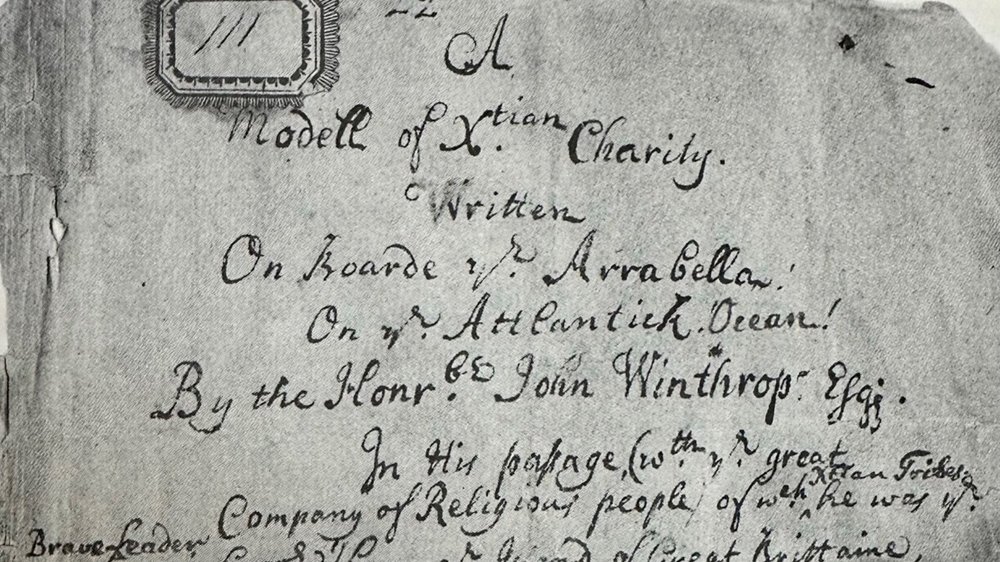 22
A
Modell of Xtian Charity.
Written
On Boarde ye Arrabella!
On ye Attlantick. Ocean!
By the Honrble John Winthrop. Esqr.
In His passage, (wth ye great
Company of Religious people, of wch Xtian Tribes he was ye
Brave Leader
of Great Brittaine,